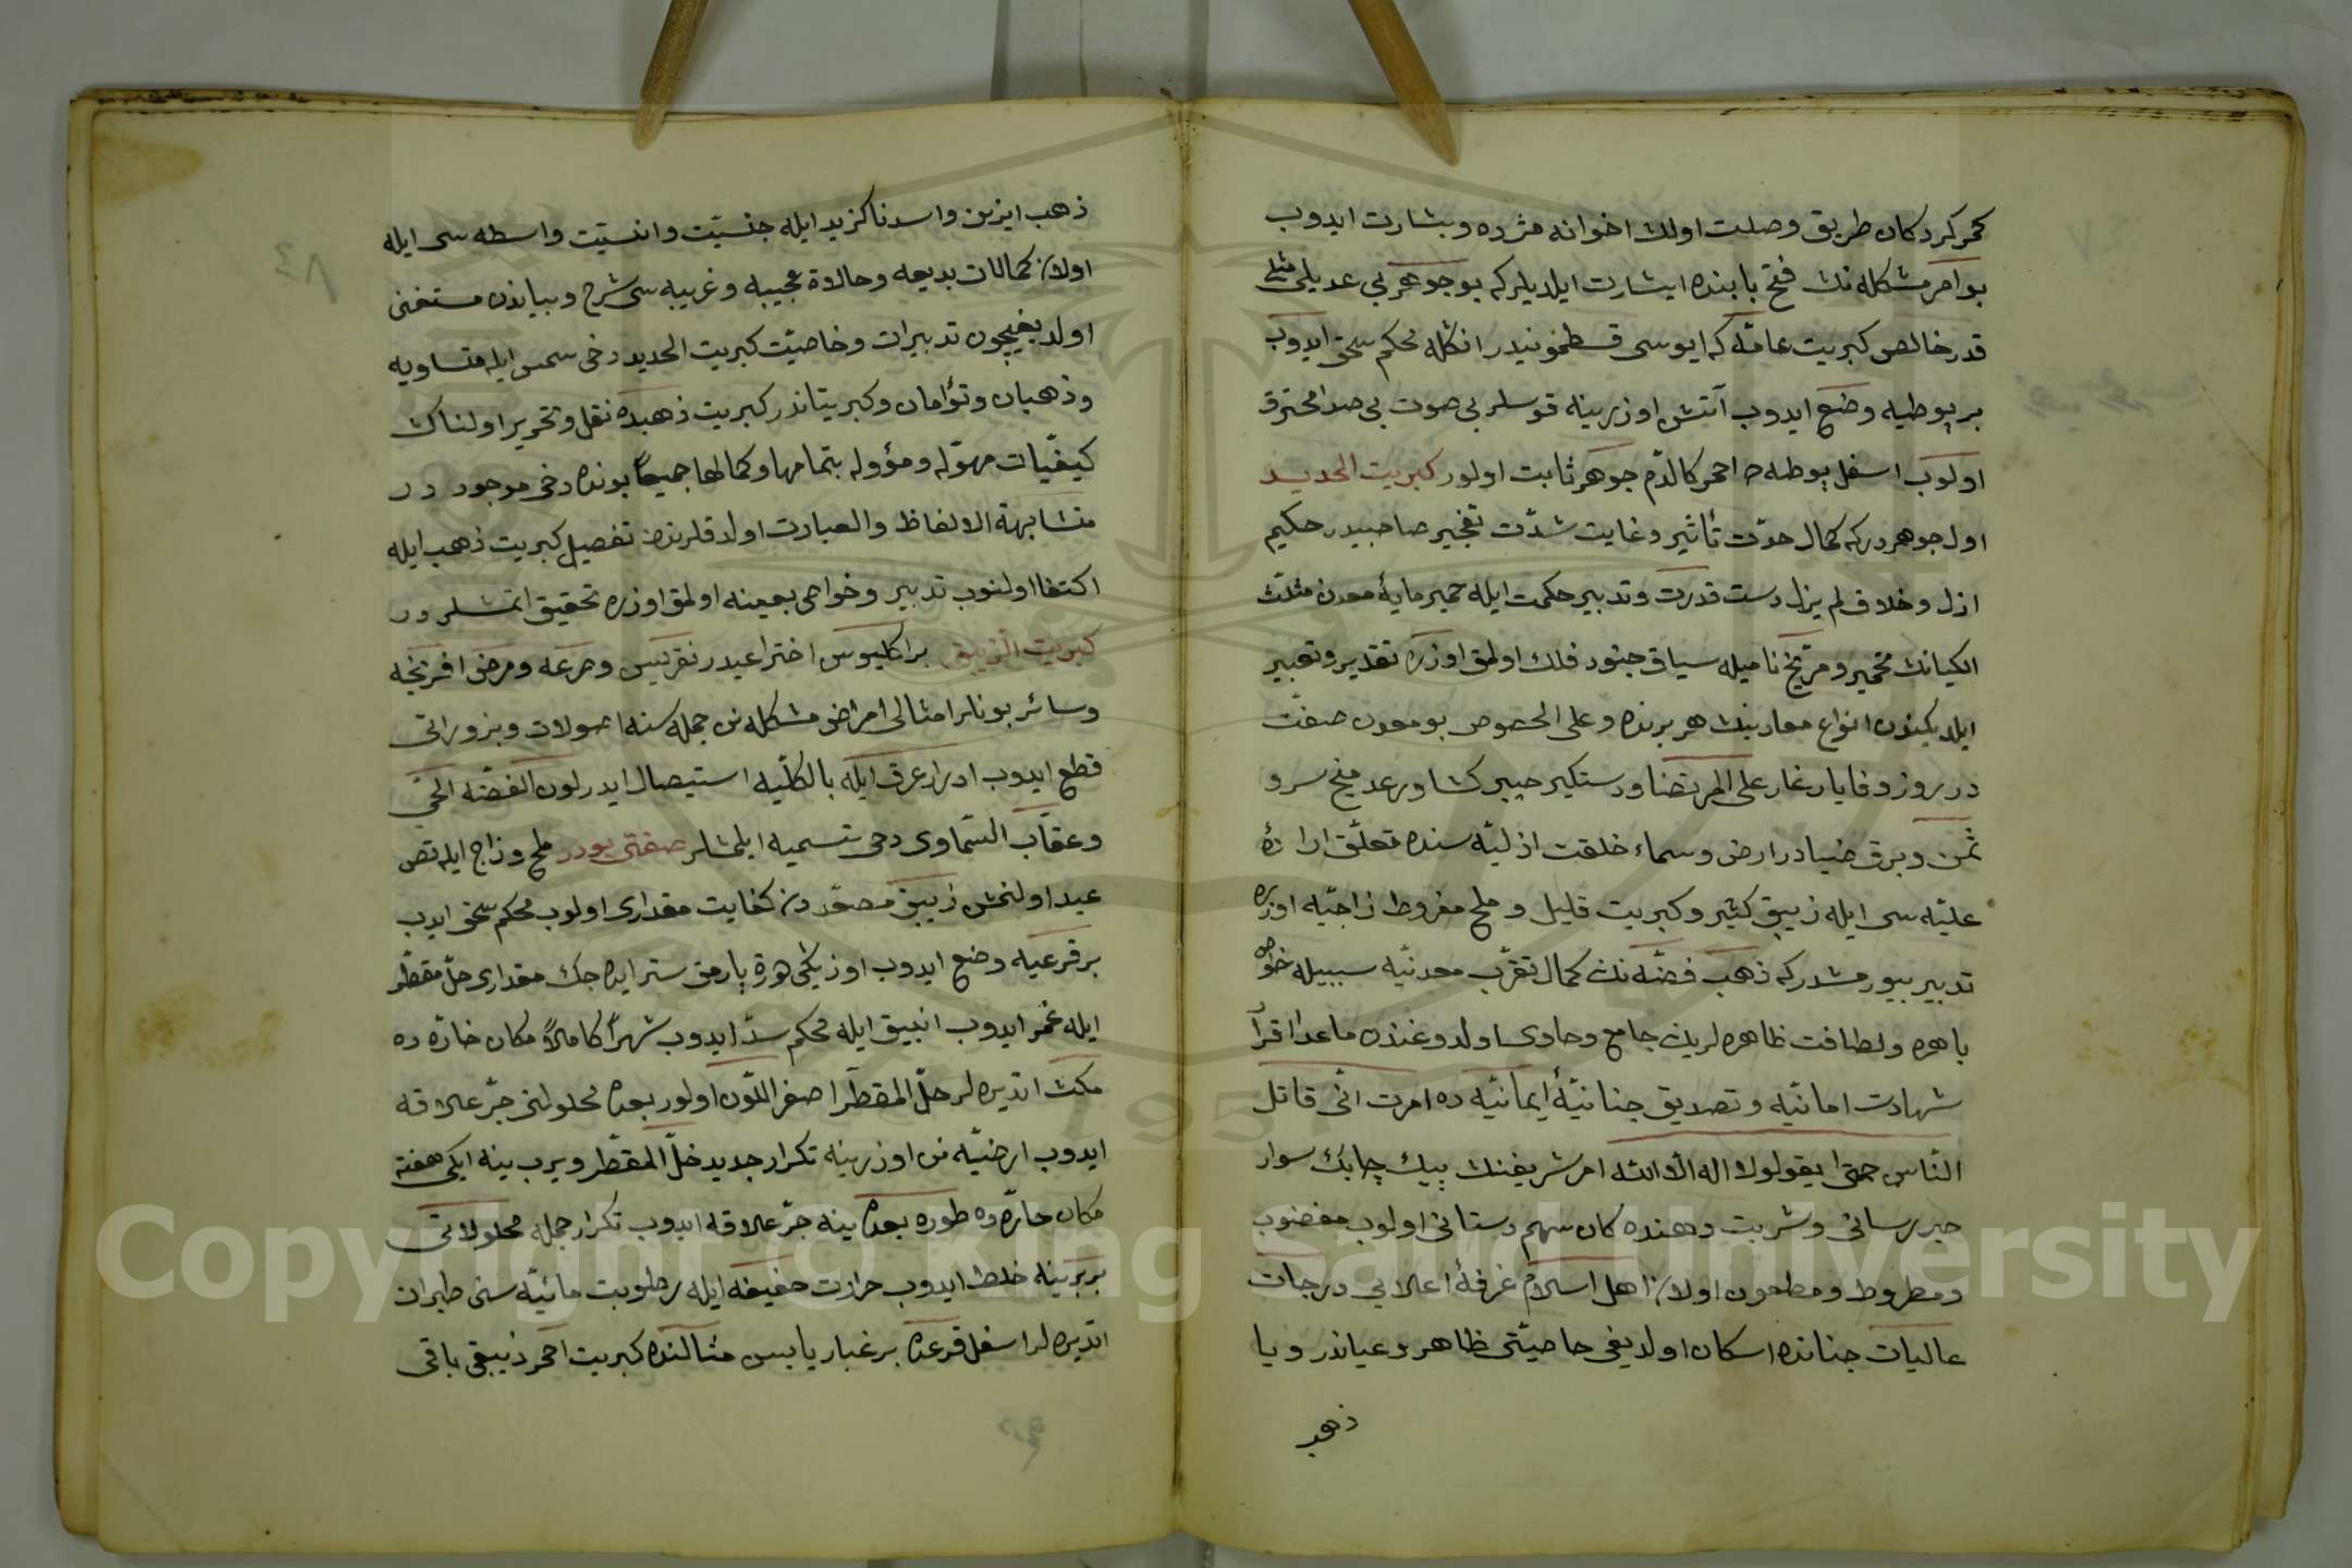 كحر كردكان طريق وصلت اولان اخوانه مژده وبشارت ايدوب
بو امر مشكله نك فتح بابنده ايشارت ايلديلر كه بو جوهر بى عديلى مثلى
قدر خالص كبريت عامّه كه ايوسى قسطمونيدر انكله محكم سحق ايدوب
بر پوطيه وضع ايدوب آتش اوزرينه قوسلر بى صوت بى صدا محترق
اولوب اسفل پوطه ده احمر كالدّم جوهر ثابت اولور كبريت الحديد
اول جوهر دركه كمال حدّت تأثير وغايت شدّت تفجير صاحبيدر حكيم
ازل وخلاق لم يزل دست قدرت وتدبير حكمت ايله خمير مايهٔ معدن مثلّث
الكيانك تخمير ومرّيخ ناميله سياق جنود فلك اولمق اوزره تقدير وتعبير
ايلديكيندن انواع معادنك هر برنده وعلى الخصوص بو معدن صفت
در بروز وفايا رغار على المرتضا ودستكير خيبر كشا ورعد منح سرو
ثمن وبرق ضيا در ارض وسماء خلقت ازليّه سنده تعلّق ارادهٔ
عليّه سى ايله زيبق كثير وكبريت قليل وملح مفروط زاجيّه اوزره
تدبير بيورمشدر كه ذهب فضّه نك كمال تقرّب معدنيّه سببيله خواص
باهره ولطافت ظاهره لرينى جامع وحاوى اولدوغندن ماعدا اقرأ
شهادت امانيّه وتصديق جنانيّهٔ ايمانيّه ده امرت انّى قاتل
النّاس حتى يقولوا لا اله الّا الله امر شريفنك پيك چابك سوار
خبر رسانى وشربت دهنده كان سهم دستانى اولوب مغضوب
ومطروط ومطعون اولان اهل اسلام غرفهٔ اعلاىى درجات
عاليات جنانده اسكان اولديغى خاصيّتى ظاهر وعياندر ويا
ذهب
ذهب ايزين واسدنا كزيد ايله جنسيّت وانسيّت واسطه سى ايله
اولان كمالات بديعه وحالاة عجيبه وغريبه سى شرح وبياندن مستغنى
اولديغيچون تدبيرات وخاصيّت كبريت الحديد دخى شمس ايله متساويه
وذهبان وتؤامان وكبريتاندر كبريت ذهبده نقل وتحرير اولنان
كيفيّات مهوّله ومؤوله بتمامها وكمالها جميعاً بونده دخى موجود در
متشابهة الالفاظ والعبارت اولدقلرندن تفصيل كبريت ذهب ايله
اكتفا اولنوب تدبير وخواصى بعينه اولمق اوزره تحقيق اتمشلر در
كبريت الزّيبق براكليوس اختراعيدر نقريس وصرعه ومرض افرنجيه
وسائر بونلر امثالى امراض مشكله نن جمله سنه اصولات وبزوراتى
قطع ايدوب ادرار عرق ايله بالكلّيه استيصال ايدر لون الفضّه الحىّ
وعقاب السّماوى دخى تسميه ايلمشلر صفتى بودر ملح وزاج ايله تص
عيد اولنمش زيبق مصعّددن كفايت مقدارى اولوب محكم سحق ايدب
بر قرعيه وضع ايدوب اوزيكى هورة پارمق ستر ايده جك مقدارى خلّ مقطّر
ايله غمر ايدوب انبيق ايله محكم سدّ ايدوب شهراً كاملاً مكان حارّه ده
مكث اتديره لر خلّ المقطّر اصفر اللّون اولور بعده محلولنى جرّ علاقه
ايدوب ارضيّه نن اوزرينه تكرار جديد خلّ المقطّر ويرب ينه ايكى هفته
مكان حارّه ده طوره بعده ينه جرّ علاقه ايدوب تكرار جمله محلولاتى
بربرينه خلط ايدوب حرارت خفيفه ايله رطوبت مائيّه سنى طيران
اتديره لر اسفل قرعده بر غبار يابس مثالنده كبريت احمر زيبقى باقى